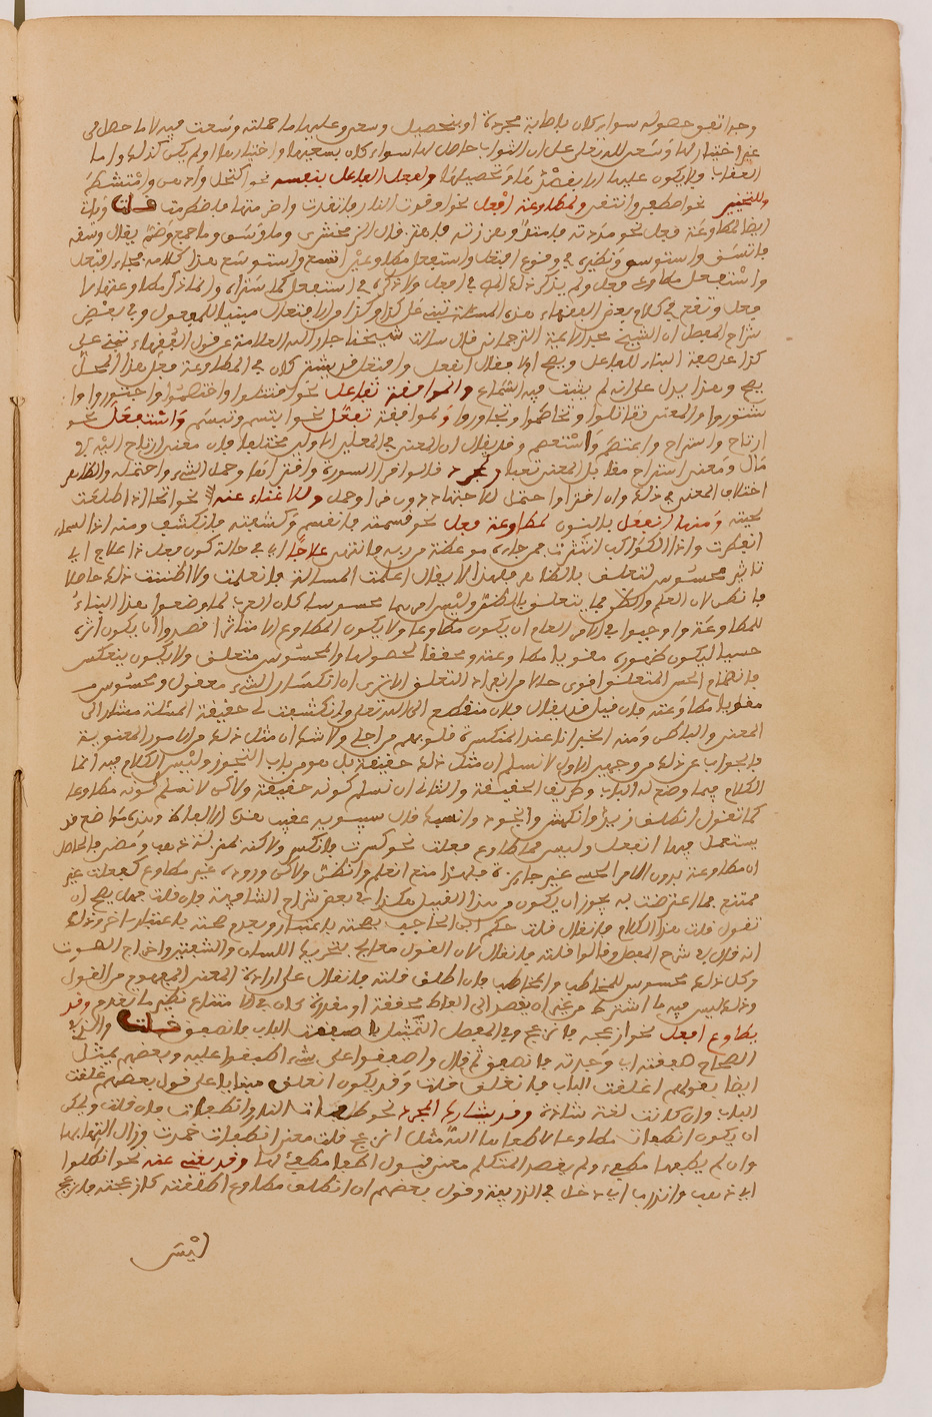 وجه اتفق حصوله سواء كان بإصابة مجردة او بتحصيل وسعي وعليها ما حملته وسعت فيه لا ما حصل في
غير اختيارها وسعي لله تعلى على ان الثواب حاصل لها سواء كان بسعيها واختيارها او لم يكن كذلك واما
العقاب فلا يكون عليها الا بقصدها وتحصيلها ولفعل الفاعل بنفسه نحو اكتحل وادهن وامتشط
وللتخير نحو اصطفى وانتقى ولمطاوعة افعل نحو اوقدت النار فاتقدت واضرمتها فاضطرمت قلت وياتي
ايضا لمطاوعة فعل نحو مددته فامتد وهززته فاهتز قال الزمخشري وما وسق وما جمع وضم يقال وسقه
فاتسق واستوسق ونظيره في وقوع افتعل واستفعل مطاوعين اتسع واستوسع هذا كلامه فجاء افتعل
واستفعل مطاوع فعل ولم يذكر ذلك الم في افعل ولا ذكره في استفعل كما ستراه وانما ذكر مطاوعتها لا
فعل وتقع في كلام بعض الفقهاء هذه المسئلة تبتنى على كذا وكذا والافتعال مبنيا للمفعول وفي بعض
شراح المفصل ان الشيخ مجد الايمة الترجماني قال سالت شيخنا جار الله العلامة عن قول الفقهاء يبتنى على
كذا على صيغة البناء للفاعل ويصح ام لا فقال انفعل وافتعل قد يشتركان في المطاوعة فعل هذا المحل
يصح وهذا يدل على انه لم يثبت فيه السماع والموافقة تفاعل نحو اقتتلوا واختصموا واجتوروا وا
شتوروا والمعنى تقاتلوا وتخاصموا وتجاوروا ولموافقة تفعل نحو ابتسم وتبسم واستفعل نحو
ارتاح واستراح واعتصم واستعصم وقد يقال ان المعنى في المعلين الاولين مختلفا فان معنى ارتاح اليه اي
مال ومعنى استراح مقابل المعنى تعبا والمجرد قالوا قرا السورة واقتراها وحمل الشيء واحتمله والظاهر
اختلاف المعنى في ذلك وان اقترا واحتمل للاجتهاد دون قرا وحمل وللاغناء عنه نحو اتحا اذا اطلعت
لحيته ومنها انفعل بالنون لمطاوعة فعل نحو قسمته فانقسم وكشفته فانكشف ومنه اذا السماء
انفطرت واذا الكواكب انتثرت فمن جاءه موعظة من ربه فانتهى علاجا اي في حالة كون فعل ذا علاج اي
تاثير محسوس لتعلقه بالظاهر فلهذا لا يقال اعلمت المسالة فانعلمت ولا اظننت ذلك حاصلا
فانظن لان العلم والظن مما يتعلق بالباطن وليس امرهما محسوسا كان العرب لما وضعوا هذا البناء
للمطاوعة واوجبوا في الامر العام ان يكون مطاوعا ولا يكون المطاوع الا متاثرا قصدوا ان يكون اثره
حسيا ليكون ظهوره مقويا مطاوعته ومحققا لحصولها والمحسوس متعلق ولا يكون ينعكس
فانضمام الحس المتعلق اقوى حالا من انفراد التعلق الا ترى ان انكسار الشيء معقول ومحسوس
مقويا مطاوعته فان قيل قد يقال فلان منقطع الى الله تعلى وانكشفت لي حقيقة المسئلة مشارا الى
المعنى والباطن ومنه الخبر انا عند المنكسرة قلوبهم من اجلي ولا شك ان مثل ذلك من الامور المعنوية
فالجواب عن ذلك من وجهين الاول لا نسلم ان مثل ذلك حقيقة بل هو من باب التجوز وليس الكلام فيه انما
الكلام فيما وضع له الباب وطريق الحقيقة والثاني ان نسلم كونه حقيقة ولاكن لا نسلم كونه مطاوعا
كما تقول انطلق زيد وانكمش وانجرد وانسل قال سيبويه عقيب هذه الافعال وهذه مواضع قد
يستعمل فيها انفعل وليس مما طاوع فعلت نحو كسرت فانكسر ولاكنه بمنزلة ذهب ومضى فالحاصل
ان مطاوعة بدون الامر الحسي غير جايزة فلهذا منع انعلم وانظن ولاكن وروده غير مطاوع كفعلت غير
ممتنع فما اعترضت به يجوز ان يكون من هذا القبيل هكذا في بعض شراح الشافية فان قلت فهل يصح ان
تقول قلت هذا الكلام فانقال قلت حكم ابن الحاجب بصحته باعتبار وبعدم صحته باعتبار اخر وذلك
انه قال في شرح المفصل وقالوا قلته فانقال لان القول معالج بتحريك اللسان والشفتين واخراج الصوت
وكل ذلك محسوس للمخاطب والمخاطب فان اطلق قلته فانقال على ارادة المعنى المفهوم من القول
وذلك ليس فيه ما اشترط من غير ان يقصد الى الفاظ محققة او مقدرة كان في الامتناع نظير ما تقدم وقد
يطاوع افعل نحو ازعجه فانزعج وفي المفصل التمثيل باصفقت الباب فانصفق قلت والذي في
الصحاح صفقته اي رددته فانصفق ثم قال واصفقوا على شيء اطبقوا عليه وبعضهم يمثل
ايضا بقولهم اغلقت الباب فانغلق قلت وقد يكون انغلق مبنيا على قول بعضهم غلقت
الباب وان كانت لغة شاذة وقد يشارك المجرد نحو طفئت النار وانطفات فان قلت ويمكن
ان يكون انطفات مطاوعا لاطفاها الله مثل انزعج قلت معنى انطفات خمدت وزال التهابها
وان لم يطفها مطفيء ولم يقصد المتكلم معنى قبول اطفا مطفئ لها وقد يغني عنه نحو انطلقوا
اي ذهب وانزرب اي دخل في الزريبة وقول بعضهم ان انطلق مطاوع اطلقته كازعجته فانزعج
ليس